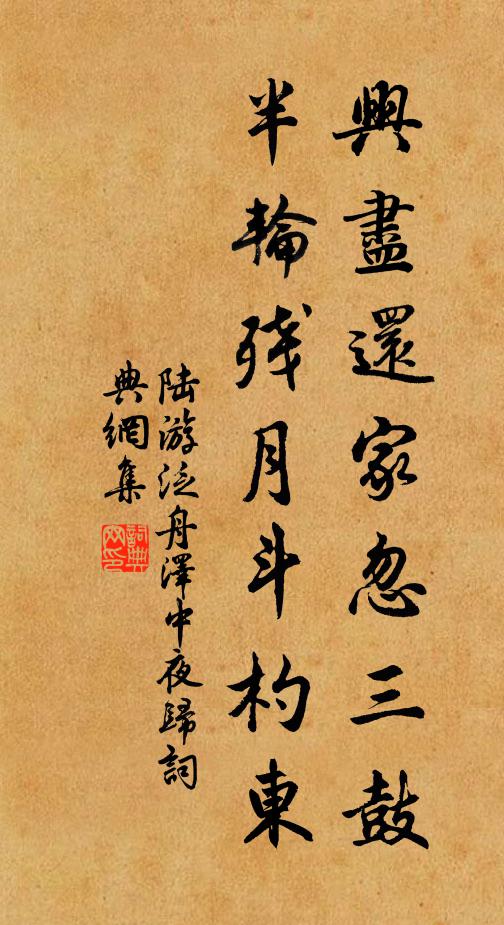 興盡還家忽三鼓
半輪殘月斗杓東
陆游泛舟澤中夜歸詞
典網集
詞典網印